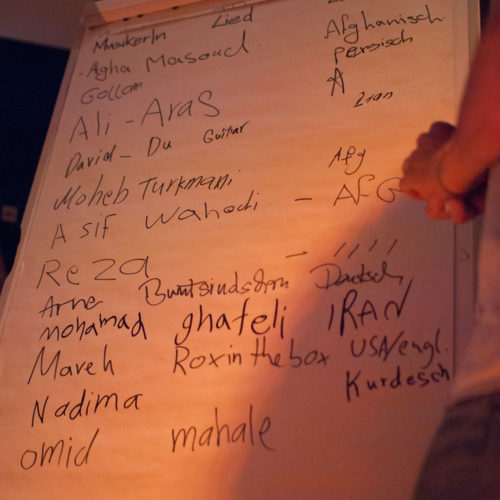 MusikerIn Lied
Agha Masoud Afghanisch
Gollam persisch
Ali - Aras A
David - Du Guitar Iran
Moheb Turkmani Afg
Asif Wahedi - AFG
Reza - ////
Arne Buntsindschon Deutsch
mohamad ghafeli IRAN
Mareh Roxinthebox USA/engl.
Nadima Kurdesch
omid mahale